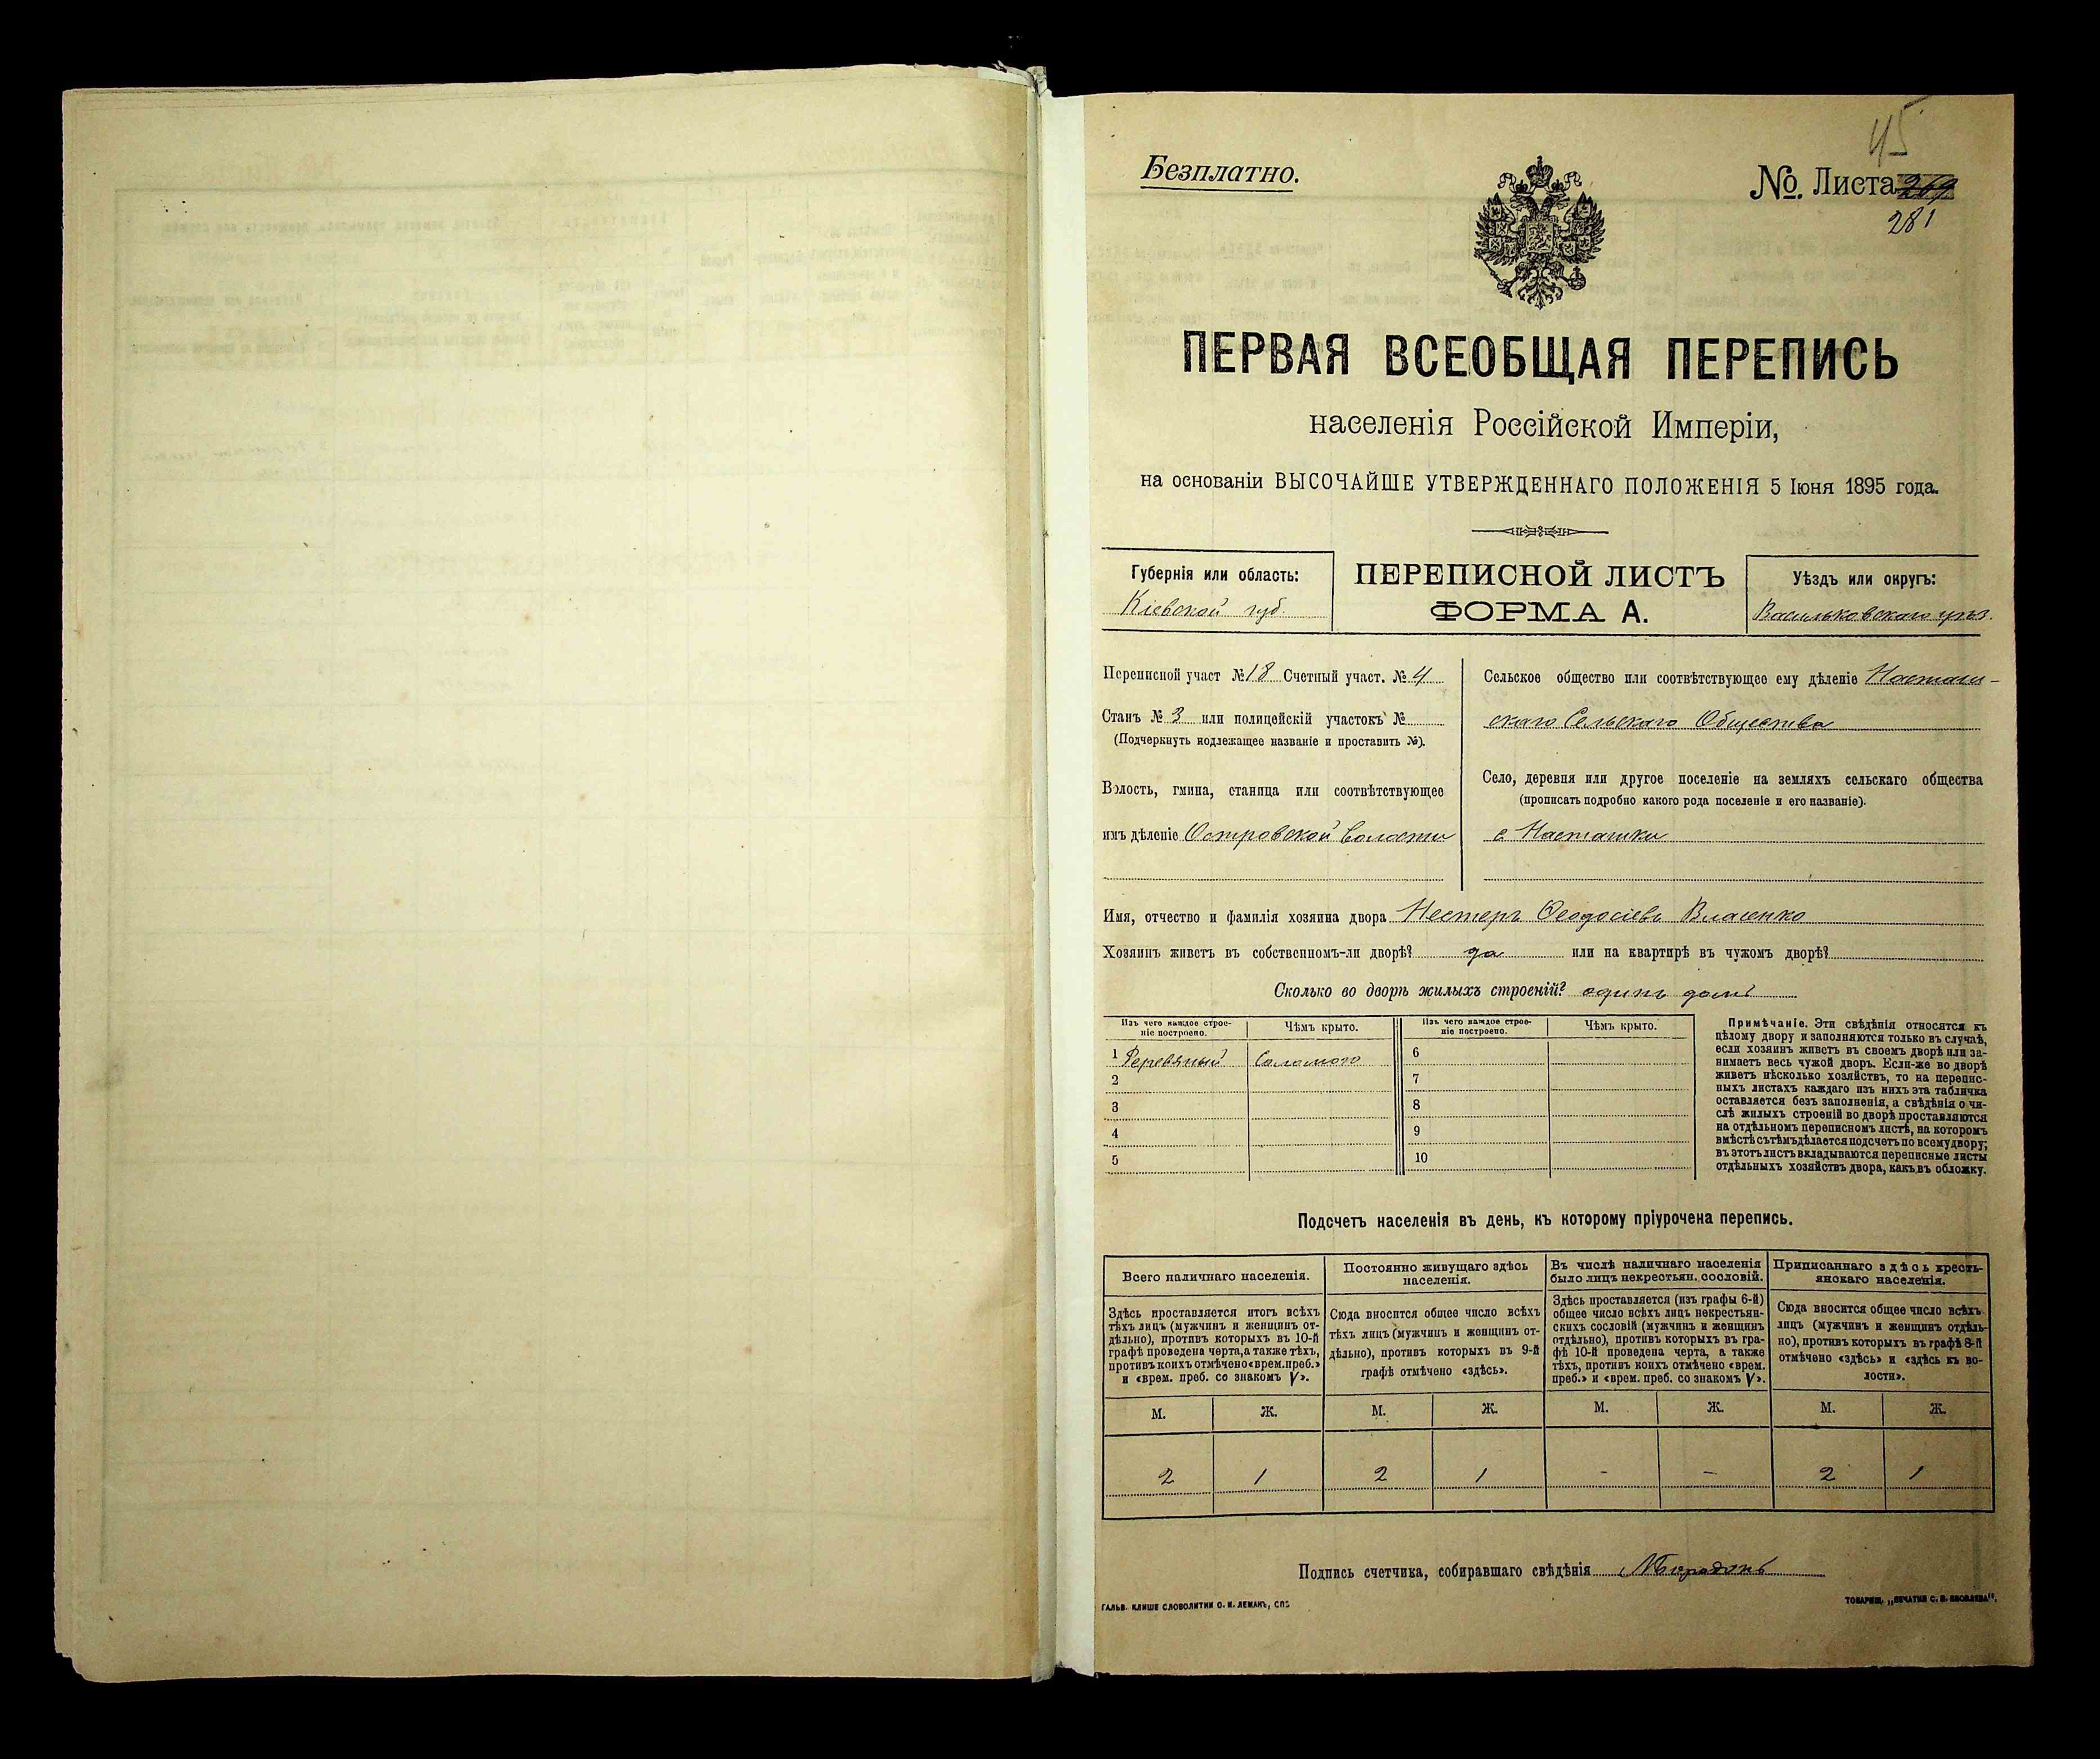 45
Безплатно.
№. Листа 269
281
ПЕРВАЯ ВСЕОБЩАЯ ПЕРЕПИСЬ
населенія Россійской Имперіи,
на основаніи ВЫСОЧАЙШЕ УТВЕРЖДЕННАГО ПОЛОЖЕНІЯ 5 Іюня 1895 года.
Губернія или область:
Кіевской губ.
ПЕРЕПИСНОЙ ЛИСТЪ
ФОРМА А.
Уѣздъ или округъ:
Васильковскаго уѣз.
Переписной участ №18 Счетный участ. № 4
Станъ № 3 или полицейскій участокъ №
(Подчеркнуть подлежащее названіе и проставить №).
Волость, гмина, станица или соотвѣтствующее
имъ дѣленіе Островской волости
Сельское общество или соотвѣтствующее ему дѣленіе Насташ-
скаго Сельскаго Общества
Село, деревня или другое поселеніе на земляхъ сельскаго общества
(прописать подробно какого рода поселеніе и его названіе).
с Насташки
Имя, отчество и фамилія хозяина двора Нестеръ Ѳеодосіевъ Власенко
Хозяинъ живетъ въ собственномъ-ли дворѣ? да или на квартирѣ въ чужомъ дворѣ?
Сколько во дворѣ жилыхъ строеній? одинъ домъ
Изъ чего каждое строе-
ніе построено.
Чѣмъ крыто.
Изъ чего каждое строе-
ніе построено.
Чѣмъ крыто.
1 Деревяный Соломою
2
3
4
5
6
7
8
9
10
Примѣчаніе. Эти свѣдѣнія относятся къ
цѣлому двору и заполняются только въ случаѣ,
если хозяинъ живетъ въ своемъ дворѣ или за-
нимаетъ весь чужой дворъ. Если-же во дворѣ
живетъ нѣсколько хозяйствъ, то на перепис-
ныхъ листахъ каждаго изъ нихъ эта табличка
оставляется безъ заполненія, а свѣдѣнія о чи-
слѣ жилыхъ строеній во дворѣ проставляются
на отдѣльномъ переписномъ листѣ, на которомъ
вмѣстѣ съ тѣмъ дѣлается подсчетъ по всему двору;
въ этотъ листъ вкладываются переписные листы
отдѣльныхъ хозяйствъ двора, какъ въ обложку.
Подсчетъ населенія въ день, къ которому пріурочена перепись.
Всего наличнаго населенія.
Здѣсь проставляется итогъ всѣхъ
тѣхъ лицъ (мужчинъ и женщинъ от-
дѣльно), противъ которыхъ въ 10-й
графѣ проведена черта, а также тѣхъ,
противъ коихъ отмѣчено «врем. преб.»
и «врем. преб. со знакомъ V».
Постоянно живущаго здѣсь
населенія.
Сюда вносится общее число всѣхъ
тѣхъ лицъ (мужчинъ и женщинъ от-
дѣльно), противъ которыхъ въ 9-й
графѣ отмѣчено «здѣсь».
Въ числѣ наличнаго населенія
было лицъ некрестьян. сословій.
Здѣсь проставляется (изъ графы 6-й)
общее число всѣхъ лицъ некрестьян-
скихъ сословій (мужчинъ и женщинъ
отдѣльно), противъ которыхъ въ гра-
фѣ 10-й проведена черта, а также
тѣхъ, противъ коихъ отмѣчено «врем.
преб.» и «врем. преб. со знакомъ V».
Приписаннаго здѣсь кресть-
янскаго населенія.
Сюда вносится общее число всѣхъ
лицъ (мужчинъ и женщинъ отдѣль-
но), противъ которыхъ въ графѣ 8-й
отмѣчено «здѣсь» и «здѣсь къ во-
лости».
М. Ж. М. Ж. М. Ж. М. Ж.
2 1 2 1 - - 2 1
Подпись счетчика, собиравшаго свѣдѣнія
ГАЛЬВ. КЛИШЕ СЛОВОЛИТНИ О. И. ЛЕМАНЪ, СПБ
ТОВАРИЩ. „ПЕЧАТНЯ С. П. ЯКОВЛЕВА“.